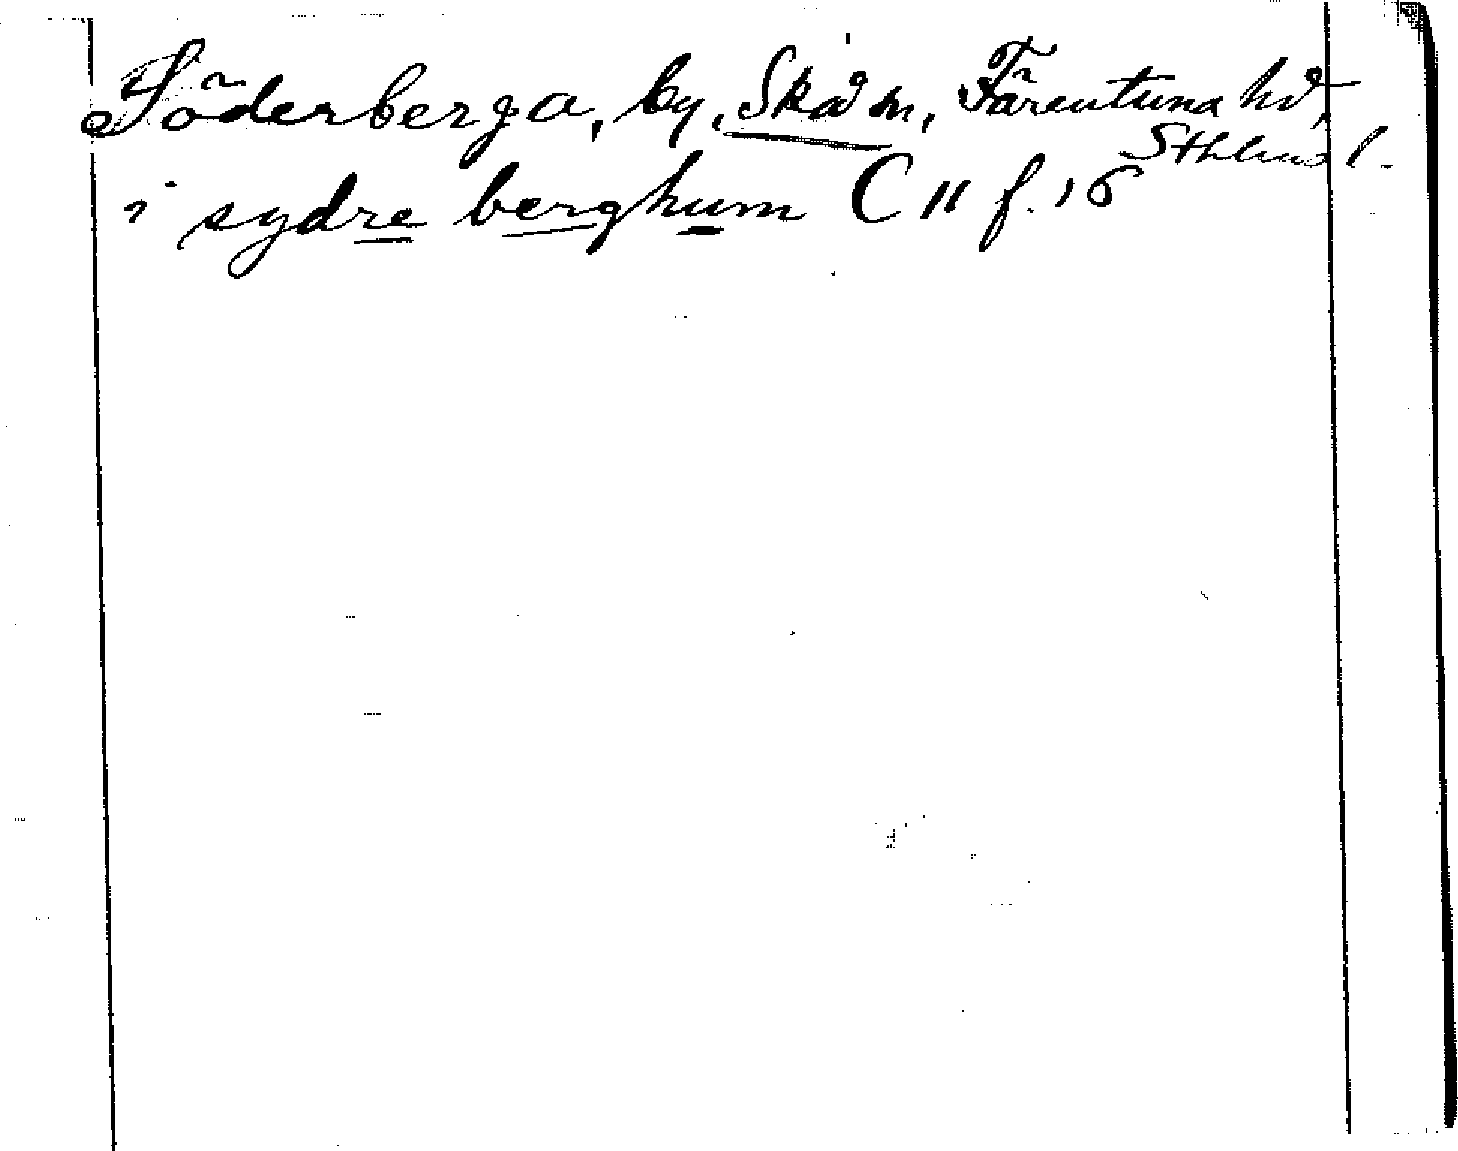 Söderberga, by, Skå sn, Färentuna hd,
Sthlms l.
i sydre berghum C 11 f. 16